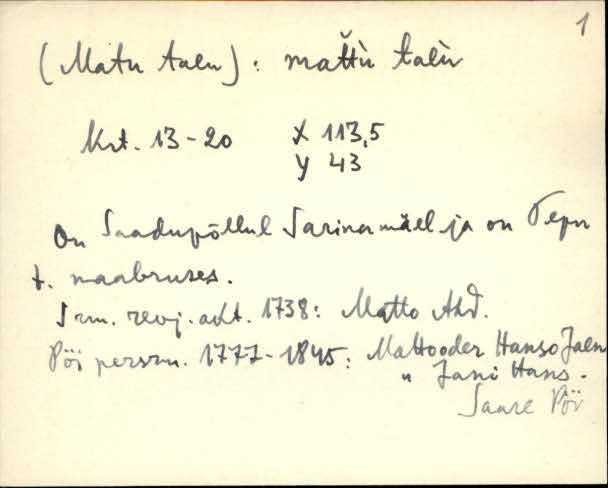 1
(Matu talu): mat̆t̀ù talù
Krt. 13-20 X 113,5
Y 43
On Saadupõllul Sarinamäel ja on Tepu
t. naabruses.
Srm. revj. akt. 1738: Matto Ahd.
Pöi persrm. 1777-1845: Mattooder Hanso Jaen
" Jani Hans.
Saare Pöi